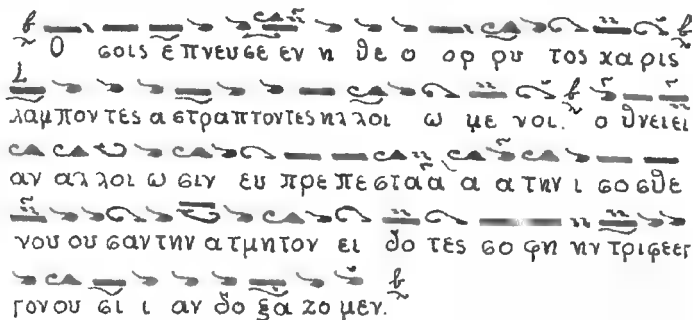 Ο σοις ε πνευσε εν η θε ο ορ ρυ τος χα ρις
λαμ πον τες α στρα πτοντες ηλ λοι ω με νοι. ο θνειει
αν αλ λοι ω σιν ευ πρε πεσταα α α την ι σο σθε
νου ου σαν την ατμητον ει δο τες σο φη ην τριφεεγ
γονου σι ι αν δο ξα ζο μεν.